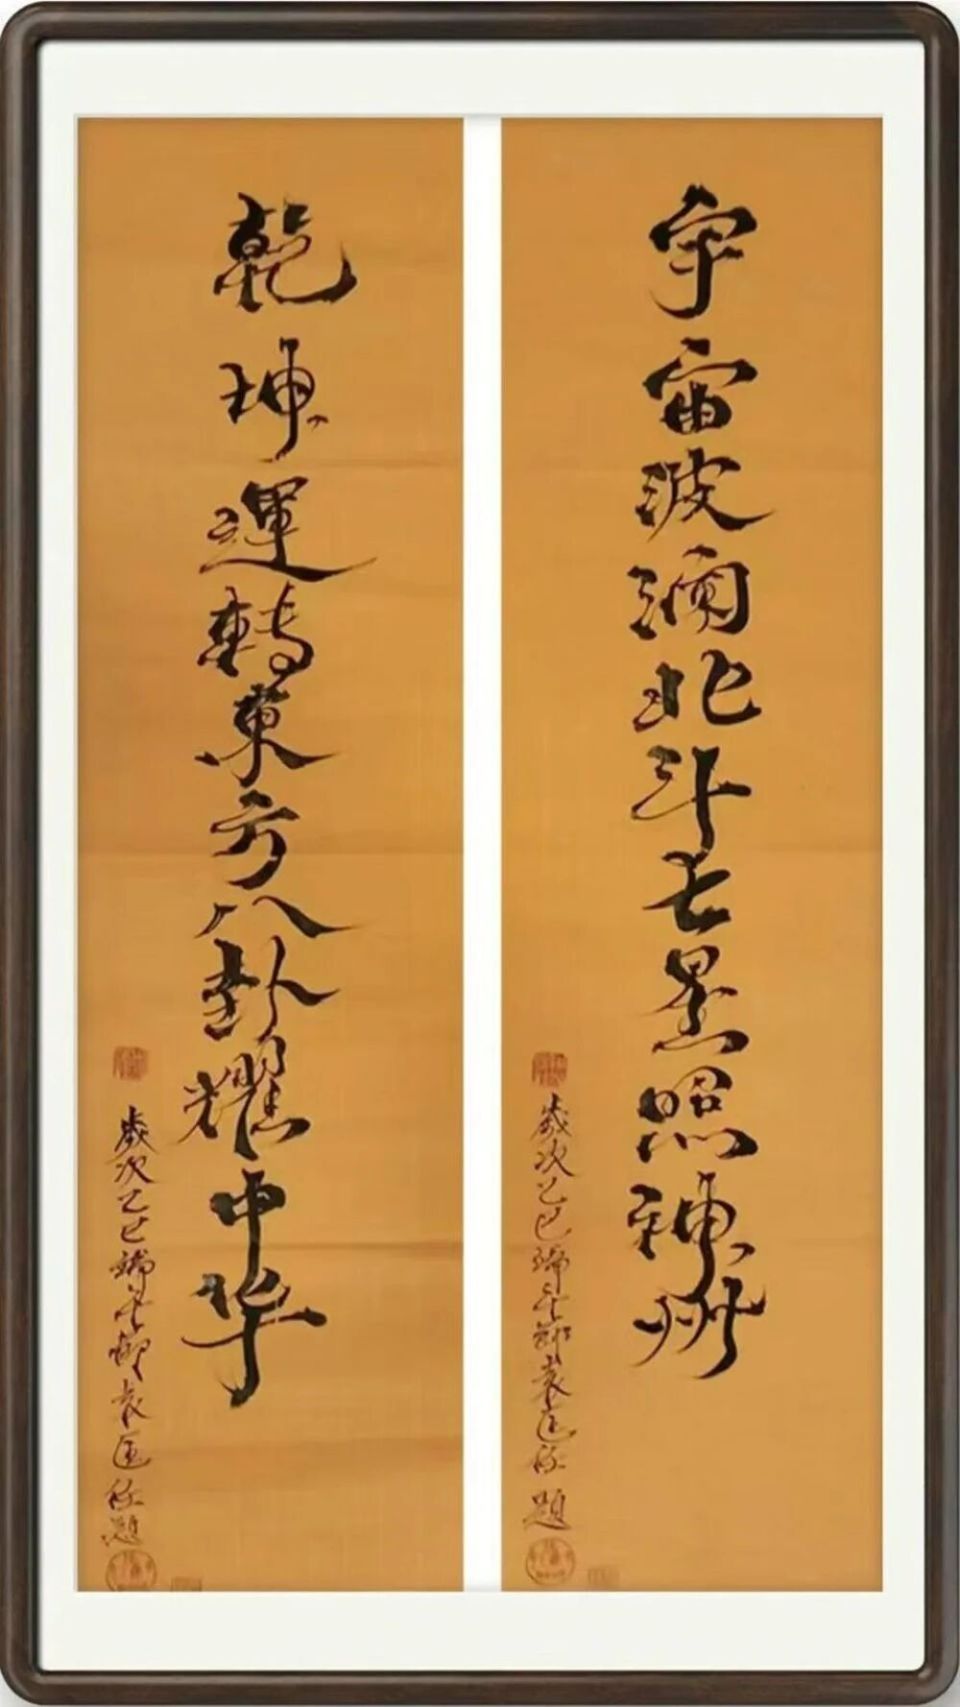 宇宙波瀾北斗七星照神州
歲次乙巳端午節袁匡任題
乾坤運轉東方八卦耀中华
歲次乙巳端午節袁匡任題